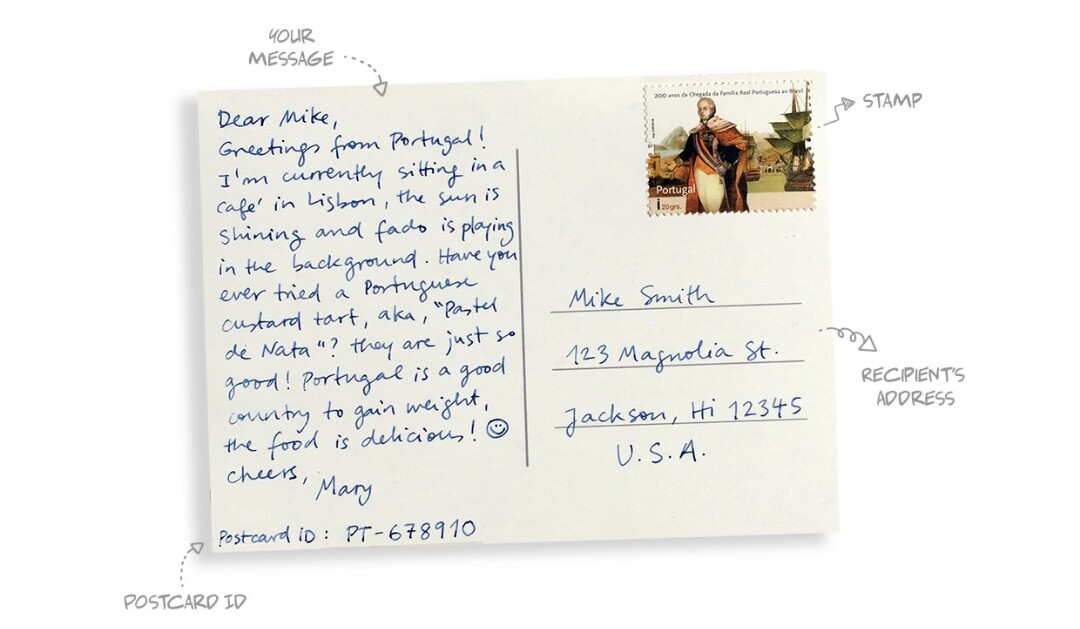 YOUR
MESSAGE
Dear Mike,
Greetings from Portugal!
I'm currently sitting in a
café in Lisbon, the sun is
shining and fado is playing
in the background. Have you
ever tried a Portuguese
custard tart, aka, "Pastel
de Nata"? they are just so
good! Portugal is a good
country to gain weight,
the food is delicious! ☺
cheers,
Mary
Postcard iD: PT-678910
POSTCARD ID
200 anos da Chegada da Família Real Portuguesa ao Brasil
Portugal
i 20 grs.
STAMP
Mike Smith
123 Magnolia St.
Jackson, Hi 12345
U.S.A.
RECIPIENT'S
ADDRESS